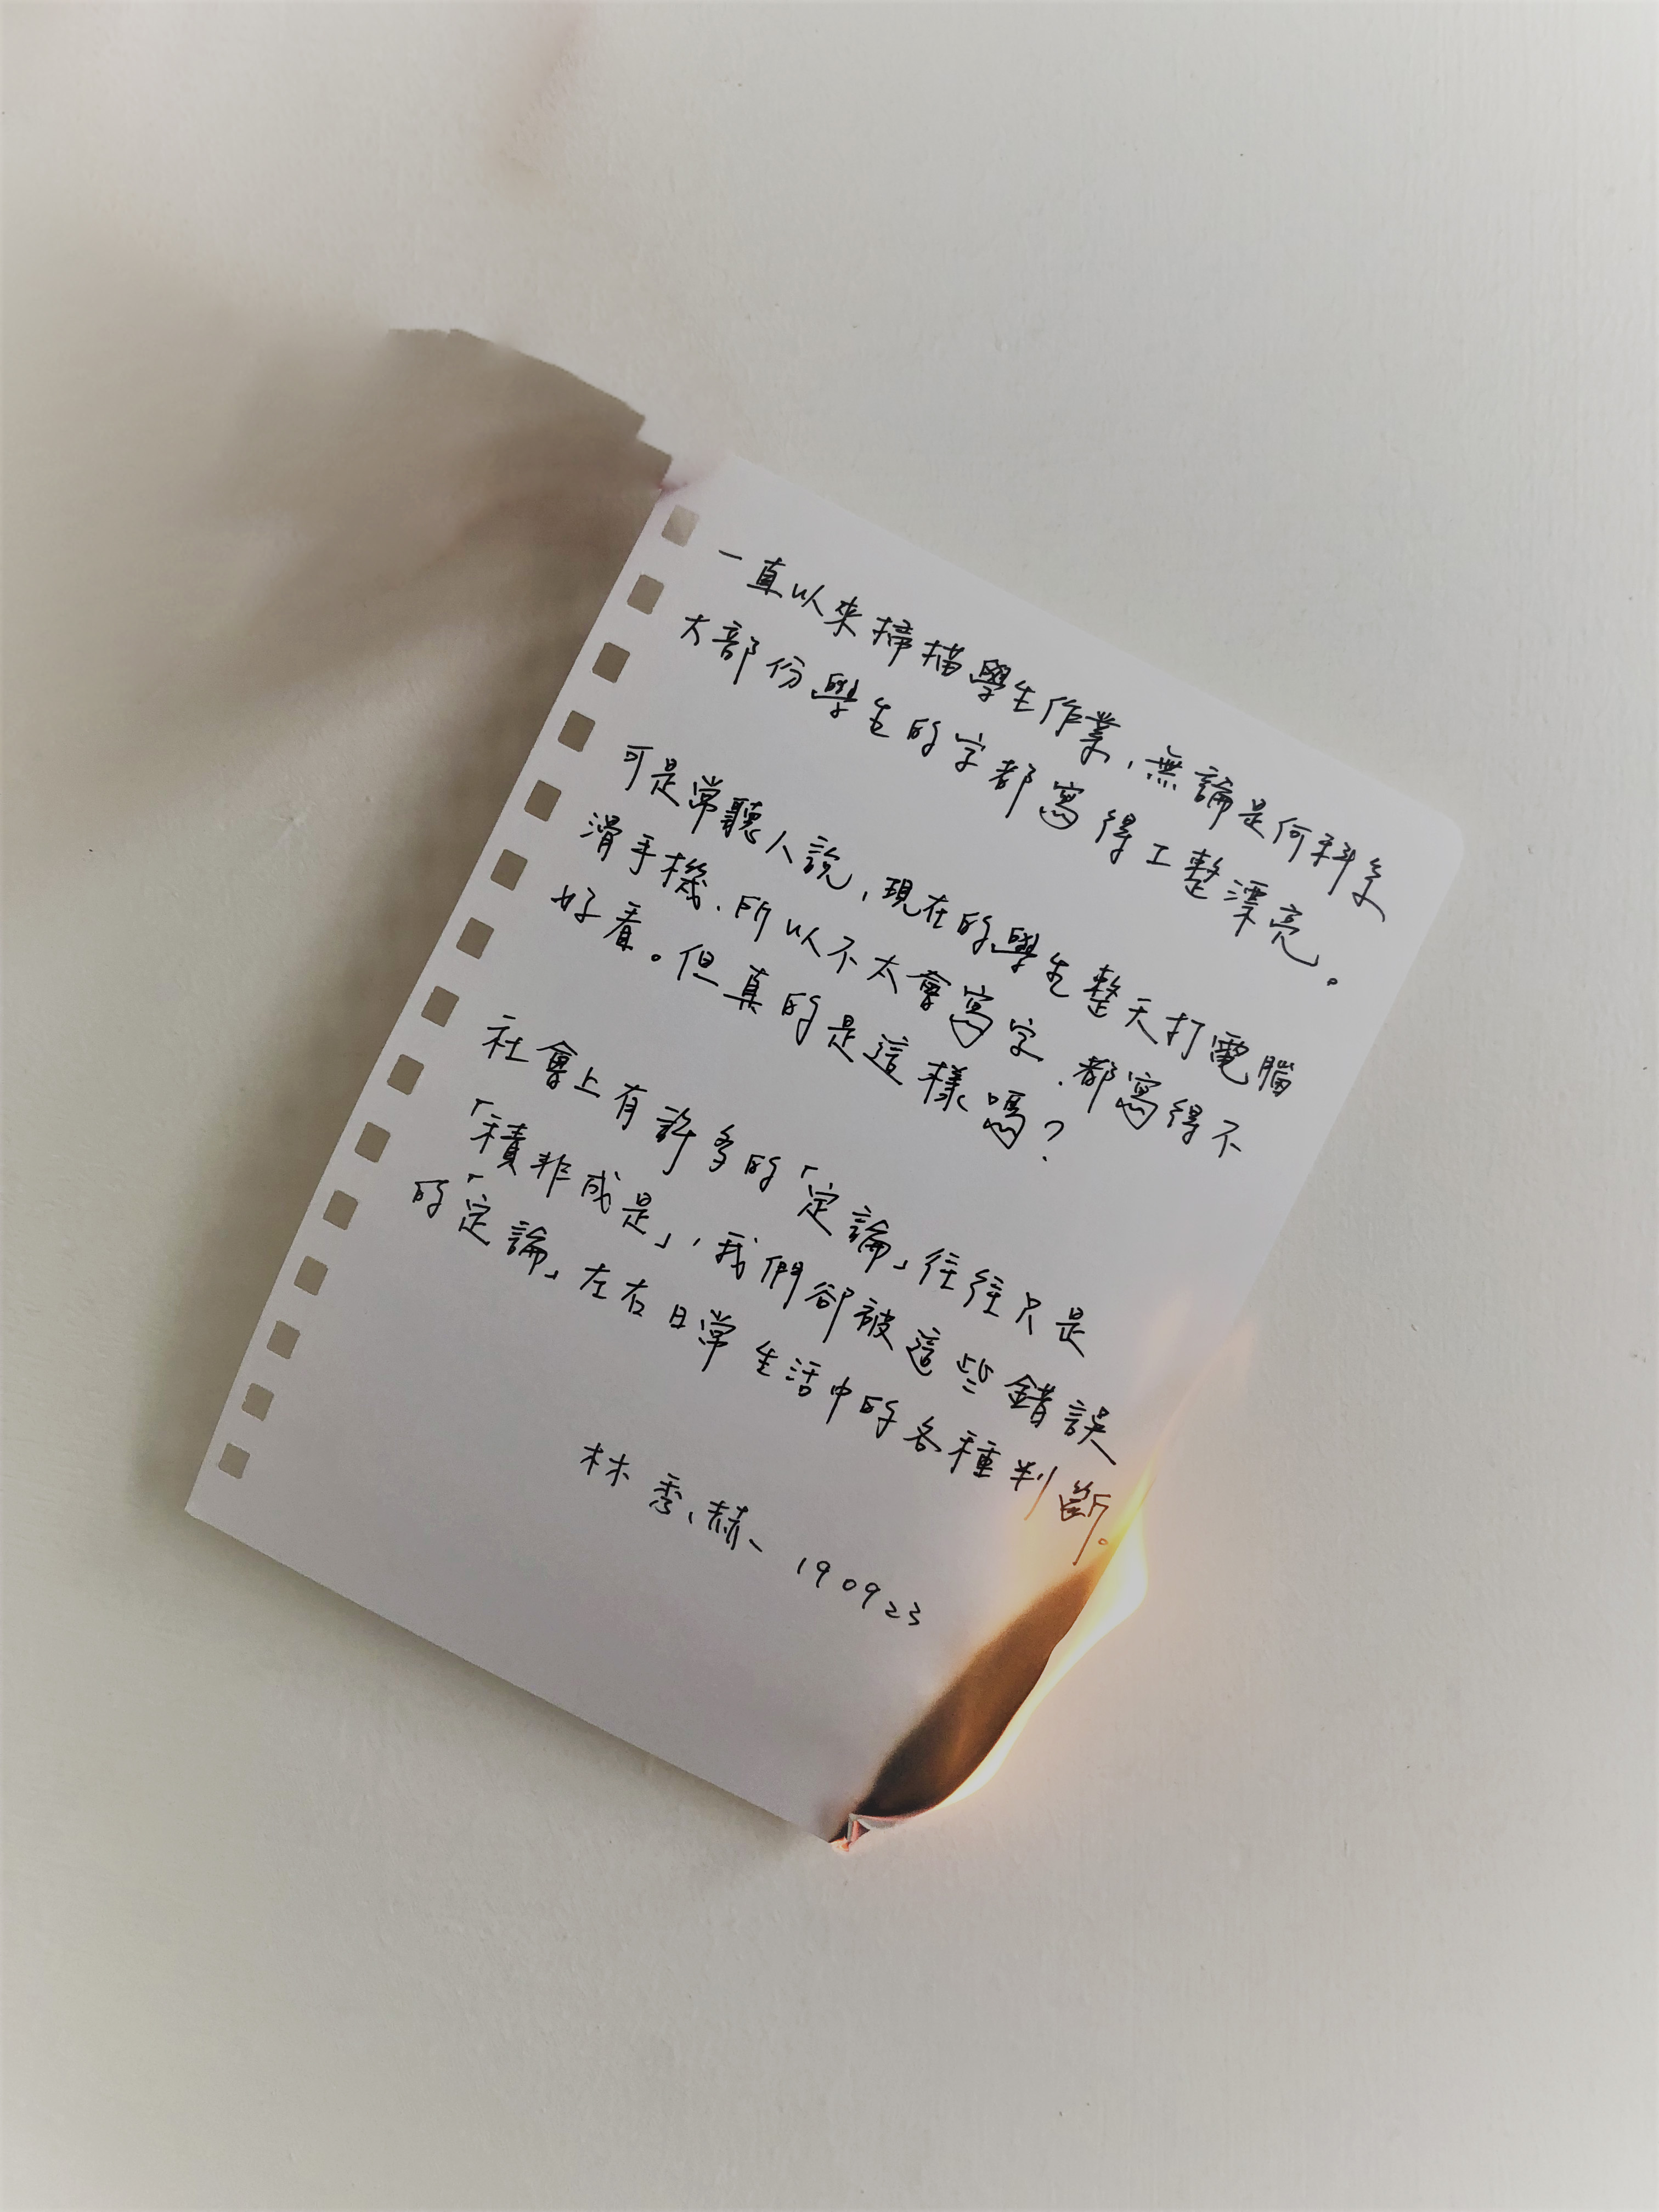 一直以來掃描學生作業，無論是何科系
大部份學生的字都寫得工整漂亮。
可是常聽人說，現在的學生整天打電腦
滑手機、所以不太會寫字、都寫得不
好看。但真的是這樣嗎？
社會上有許多的「定論」往往只是
「積非成是」，我們卻被這些錯誤
的「定論」左右日常生活中的各種判斷。
林秀赫 190923